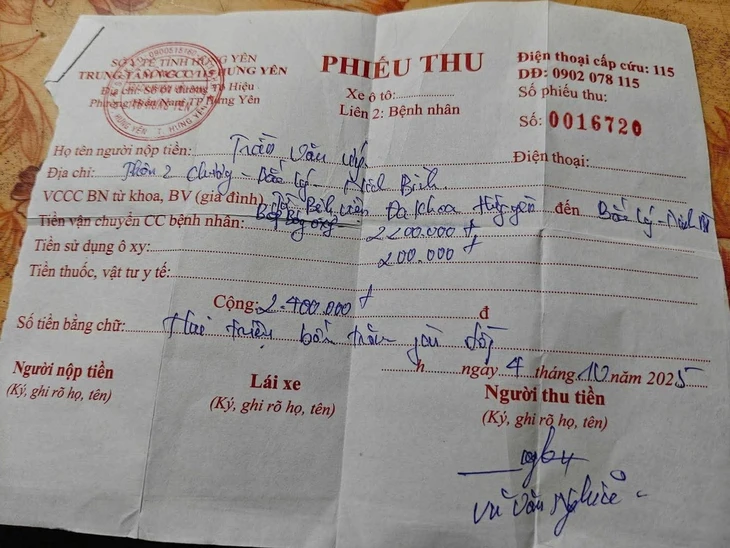 SỞ Y TẾ TỈNH HƯNG YÊN
TRUNG TÂM VCCC 115 HƯNG YÊN
Địa chỉ: Số 01 đường Tô Hiệu
Phường Hiến Nam, TP Hưng Yên
PHIẾU THU
Xe ô tô:
Liên 2: Bệnh nhân
Điện thoại cấp cứu: 115
DĐ: 0902 078 115
Số phiếu thu:
Số: 0016720
Họ tên người nộp tiền: Trần Văn Điện thoại:
Địa chỉ: Thôn 2 - Bắc Lý - Ninh Bình
VCCC BN từ khoa, BV (gia đình) Bệnh viện Đa khoa Hưng Yên đến Bắc Lý - Ninh
Tiền vận chuyển CC bệnh nhân: 2200.000 đ
Tiền sử dụng ô xy: 200.000 đ
Tiền thuốc, vật tư y tế:
Cộng: 2.400.000 đ đ
Số tiền bằng chữ: Hai triệu bốn trăm đồng
h ngày 4 tháng 10 năm 2025
Người nộp tiền
(Ký, ghi rõ họ, tên)
Lái xe
(Ký, ghi rõ họ, tên)
Người thu tiền
(Ký, ghi rõ họ, tên)
Vũ Văn